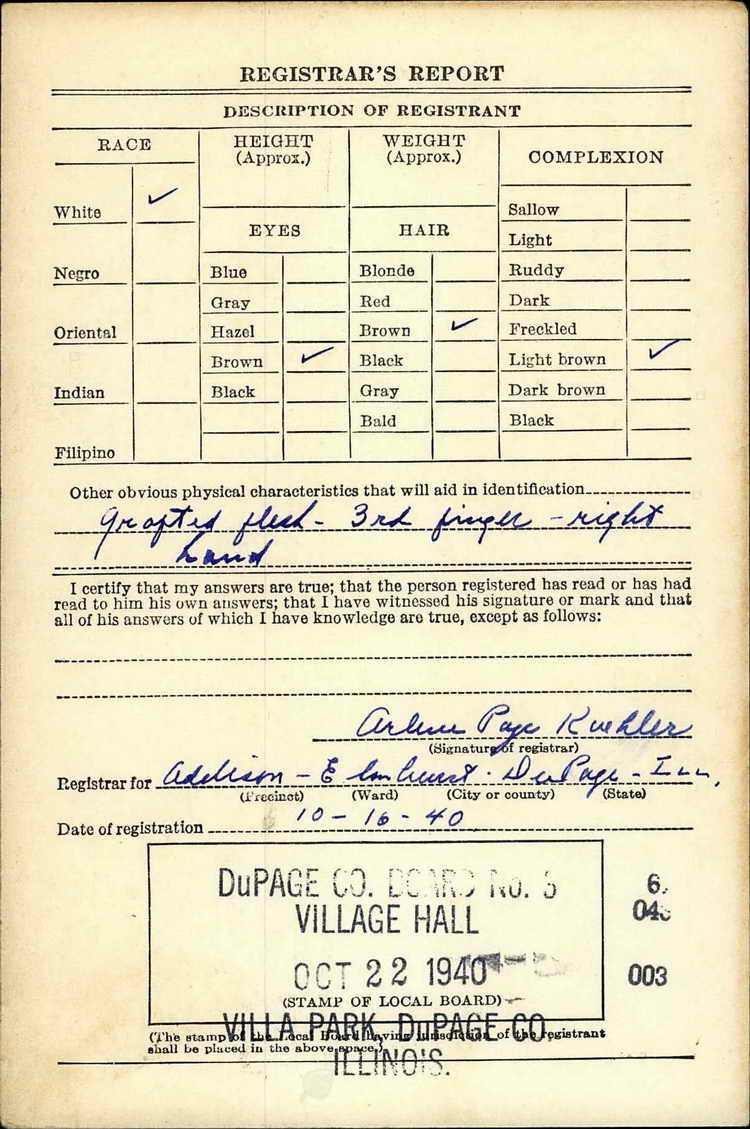 REGISTRAR'S REPORT
DESCRIPTION OF REGISTRANT
RACE
HEIGHT
(Approx.)
WEIGHT
(Approx.)
COMPLEXION
White ✓
Negro
Oriental
Indian
Filipino
EYES
Blue
Gray
Hazel
Brown ✓
Black
HAIR
Blonde
Red
Brown ✓
Black
Gray
Bald
Sallow
Light
Ruddy
Dark
Freckled
Light brown ✓
Dark brown
Black
Other obvious physical characteristics that will aid in identification
Grafted flesh - 3rd finger - right
hand
I certify that my answers are true; that the person registered has read or has had
read to him his own answers; that I have witnessed his signature or mark and that
all of his answers of which I have knowledge are true, except as follows:
Arlene Page Kuehler
(Signature of registrar)
Registrar for Addison - Elmhurst - DuPage - Ill.
(Precinct) (Ward) (City or county) (State)
Date of registration 10-16-40
DuPAGE CO. BOARD NO. 3
VILLAGE HALL
OCT 22 1940
(STAMP OF LOCAL BOARD)
VILLA PARK, DuPAGE CO
ILLINOIS.
(The stamp of the Local Board having jurisdiction of the registrant
shall be placed in the above space.)
6
043
003